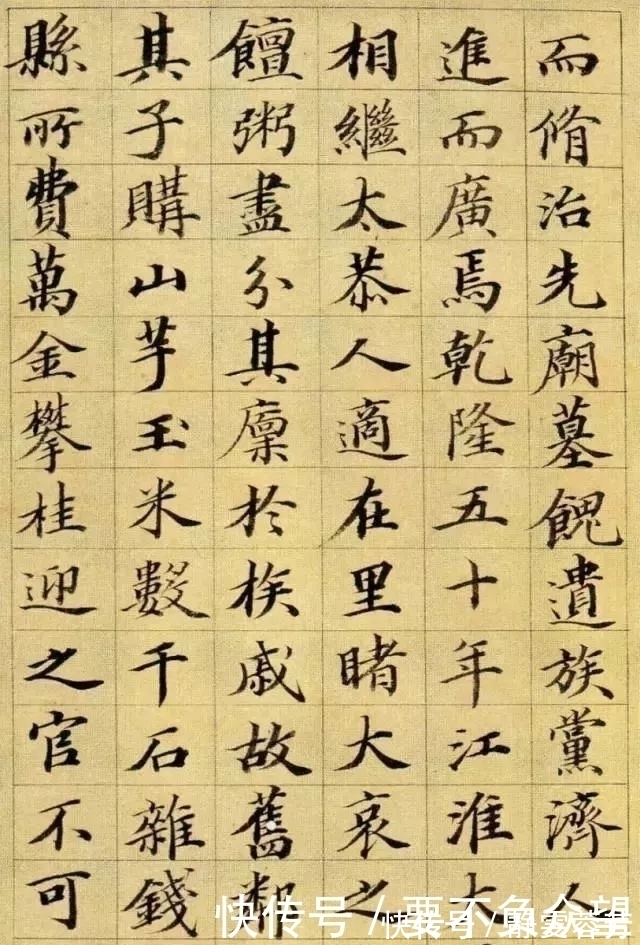 而脩治先廟墓餽遺族黨濟人
進而廣焉乾隆五十年江淮大
相繼太恭人適在里睹大哀之
饘粥盡分其廩於族戚故舊鄰
其子購山芋玉米數千石雜錢
縣所費萬金攀桂迎之官不可
快传号 / 要不负众望
快传号 /